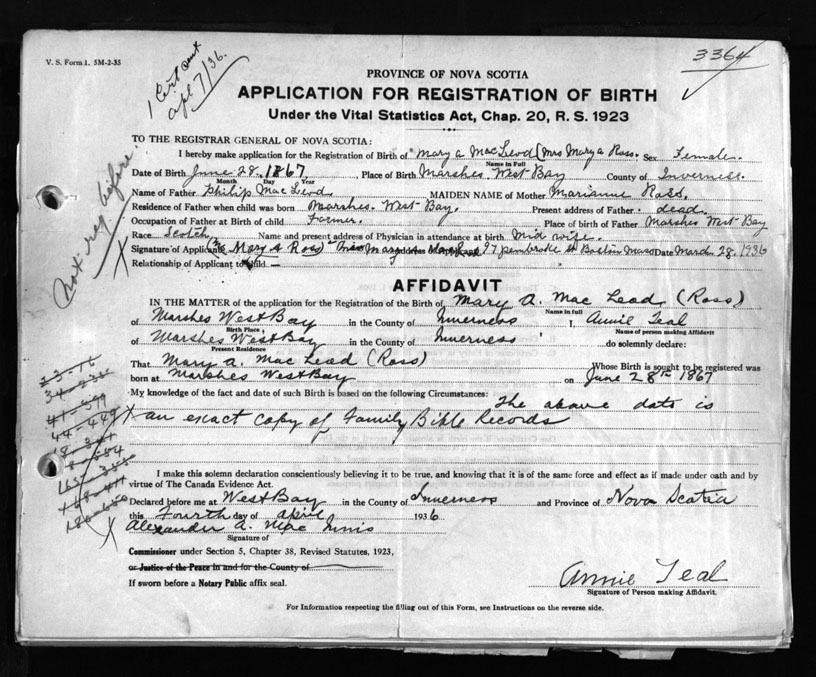 V. S. Form 1. 5M-2-35
3364
1 Cert sent
apl 7/36.
PROVINCE OF NOVA SCOTIA
APPLICATION FOR REGISTRATION OF BIRTH
Under the Vital Statistics Act, Chap. 20, R. S. 1923
TO THE REGISTRAR GENERAL OF NOVA SCOTIA:
I hereby make application for the Registration of Birth of Mary A MacLeod (Mrs Mary A Ross. Sex Female.
Name in Full
Date of Birth June 28. 1867, Place of Birth Marshes West Bay County of Inverness.
Month Day Year
Name of Father Philip MacLeod MAIDEN NAME of Mother Marianne Ross.
Residence of Father when child was born Marshes. West Bay. Present address of Father dead.
Occupation of Father at Birth of child Farmer. Place of birth of Father Marshes West Bay
Race Scotch Name and present address of Physician in attendance at birth Mid wife.
Signature of Applicant Mrs Mary A Ross 97 Pembroke St Boston Mass Date March 28. 1936
Relationship of Applicant to child —
not reg. before.
AFFIDAVIT
IN THE MATTER of the application for the Registration of the Birth of Mary A. Mac Lead (Ross)
Name in full
of Marshes West Bay in the County of Inverness I, Annie Teal
Birth Place Name of person making Affidavit
of Marshes West Bay in the County of Inverness do solemnly declare:
Present Residence
That Mary A. Mac Lead (Ross) Whose Birth is sought to be registered was
born at Marshes West Bay on June 28th 1867
My knowledge of the fact and date of such Birth is based on the following Circumstances: The above date is
an exact copy of Family Bible Records
I make this solemn declaration conscientiously believing it to be true, and knowing that it is of the same force and effect as if made under oath and by
virtue of The Canada Evidence Act.
Declared before me at West Bay in the County of Inverness and Province of Nova Scotia
this Fourth day of April 1936
Alexander A. Mac Innis
Signature of
Commissioner under Section 5, Chapter 38, Revised Statutes, 1923,
or Justice of the Peace in and for the County of
If sworn before a Notary Public affix seal.
Annie Teal
Signature of Person making Affidavit.
For Information respecting the filling out of this Form, see Instructions on the reverse side.